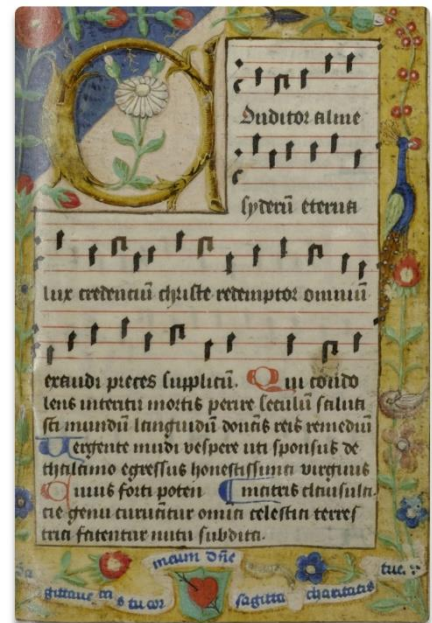 Conditor alme
syderū eterna
lux credenciū christe redemptor omniū
exaudi preces supplicū. Qui condo
lens interitu mortis perire seculū salua
sti mundū languidū donās reis remediū
Vergente mūdi vespere uti sponsus de
thalamo egressus honestissima virginis
Cuius forti poten matris clausula.
cie genu curuātur omnia celestia terres
tria fatentur nutu subdita.
Sa gittaue ra s tu cor meum dñe sagitta charitatis tue.